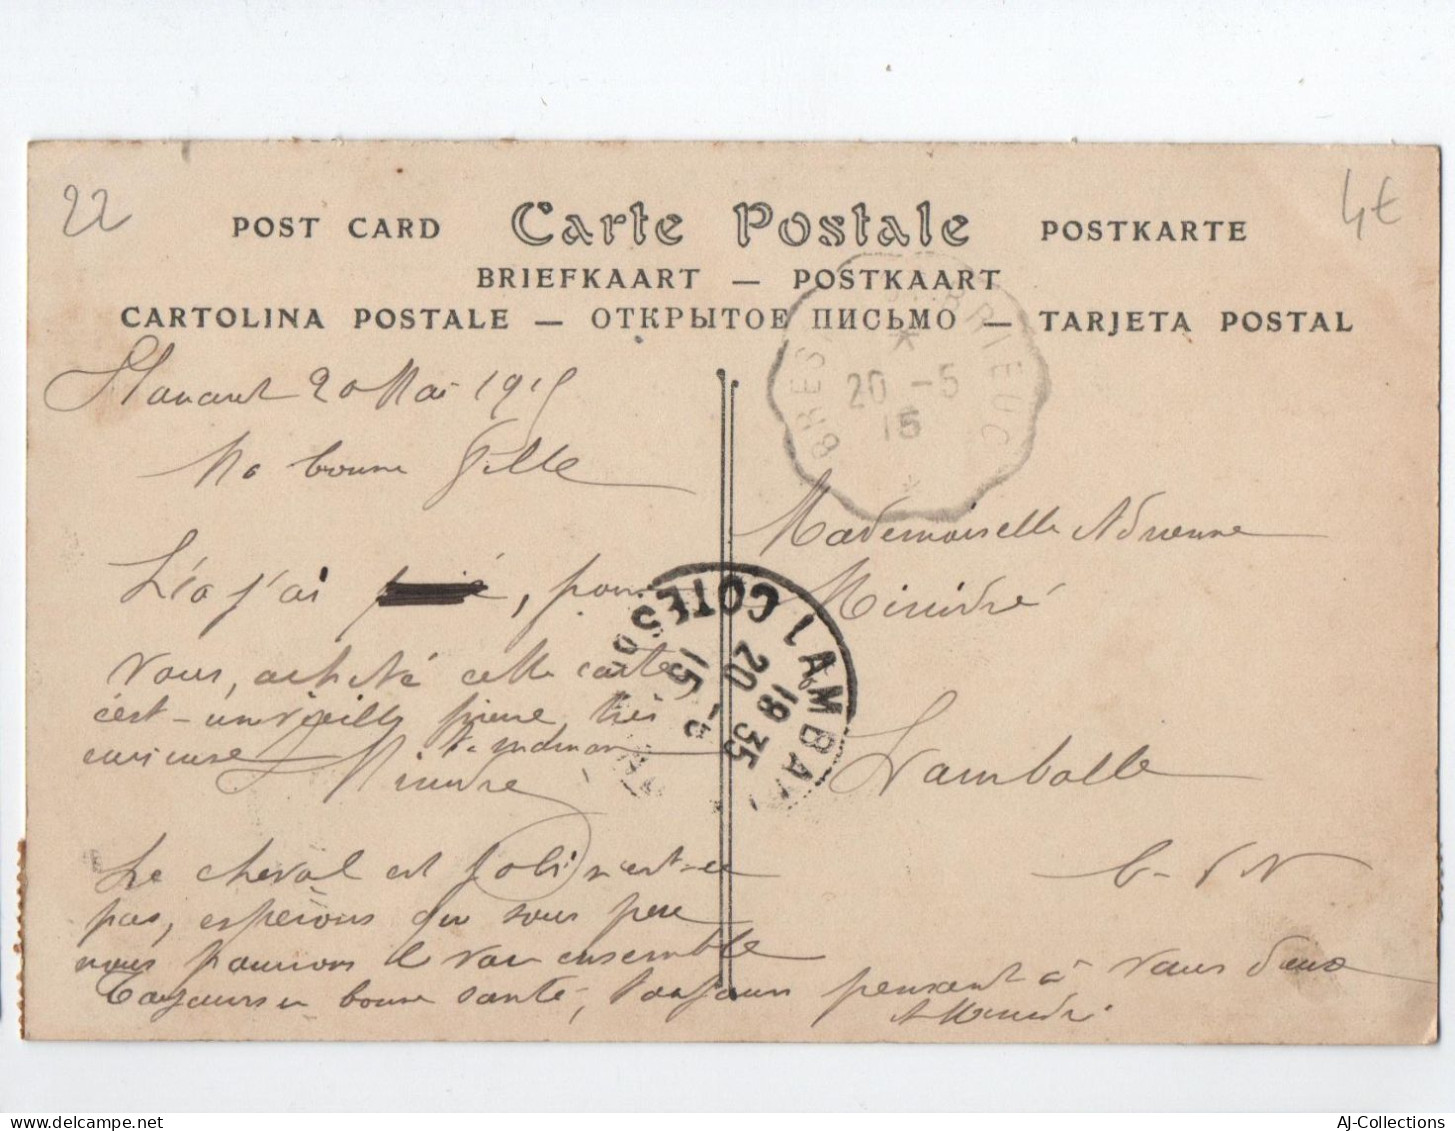 22
4€
POST CARD Carte Postale POSTKARTE
BRIEFKAART — POSTKAART
CARTOLINA POSTALE — ОТКРЫТОЕ ПИСЬМО — TARJETA POSTAL
BREST ST BRIEUC
20 -5
15
20 Mai 1915
Ma bonne fille
j'ai pour
vous, acheté cette carte
c'est une vieille pierre très
curieuse
Mademoiselle Adrienne
Lamballe
C-du-N
LAMBA COTES DU
18 35
20 -5
15
Le cheval est joli n'est-ce
pas, espérons que sous peu
nous pourrons le voir ensemble
Toujours en bonne santé, Toujours pensant à vous deux
AJ-Collections